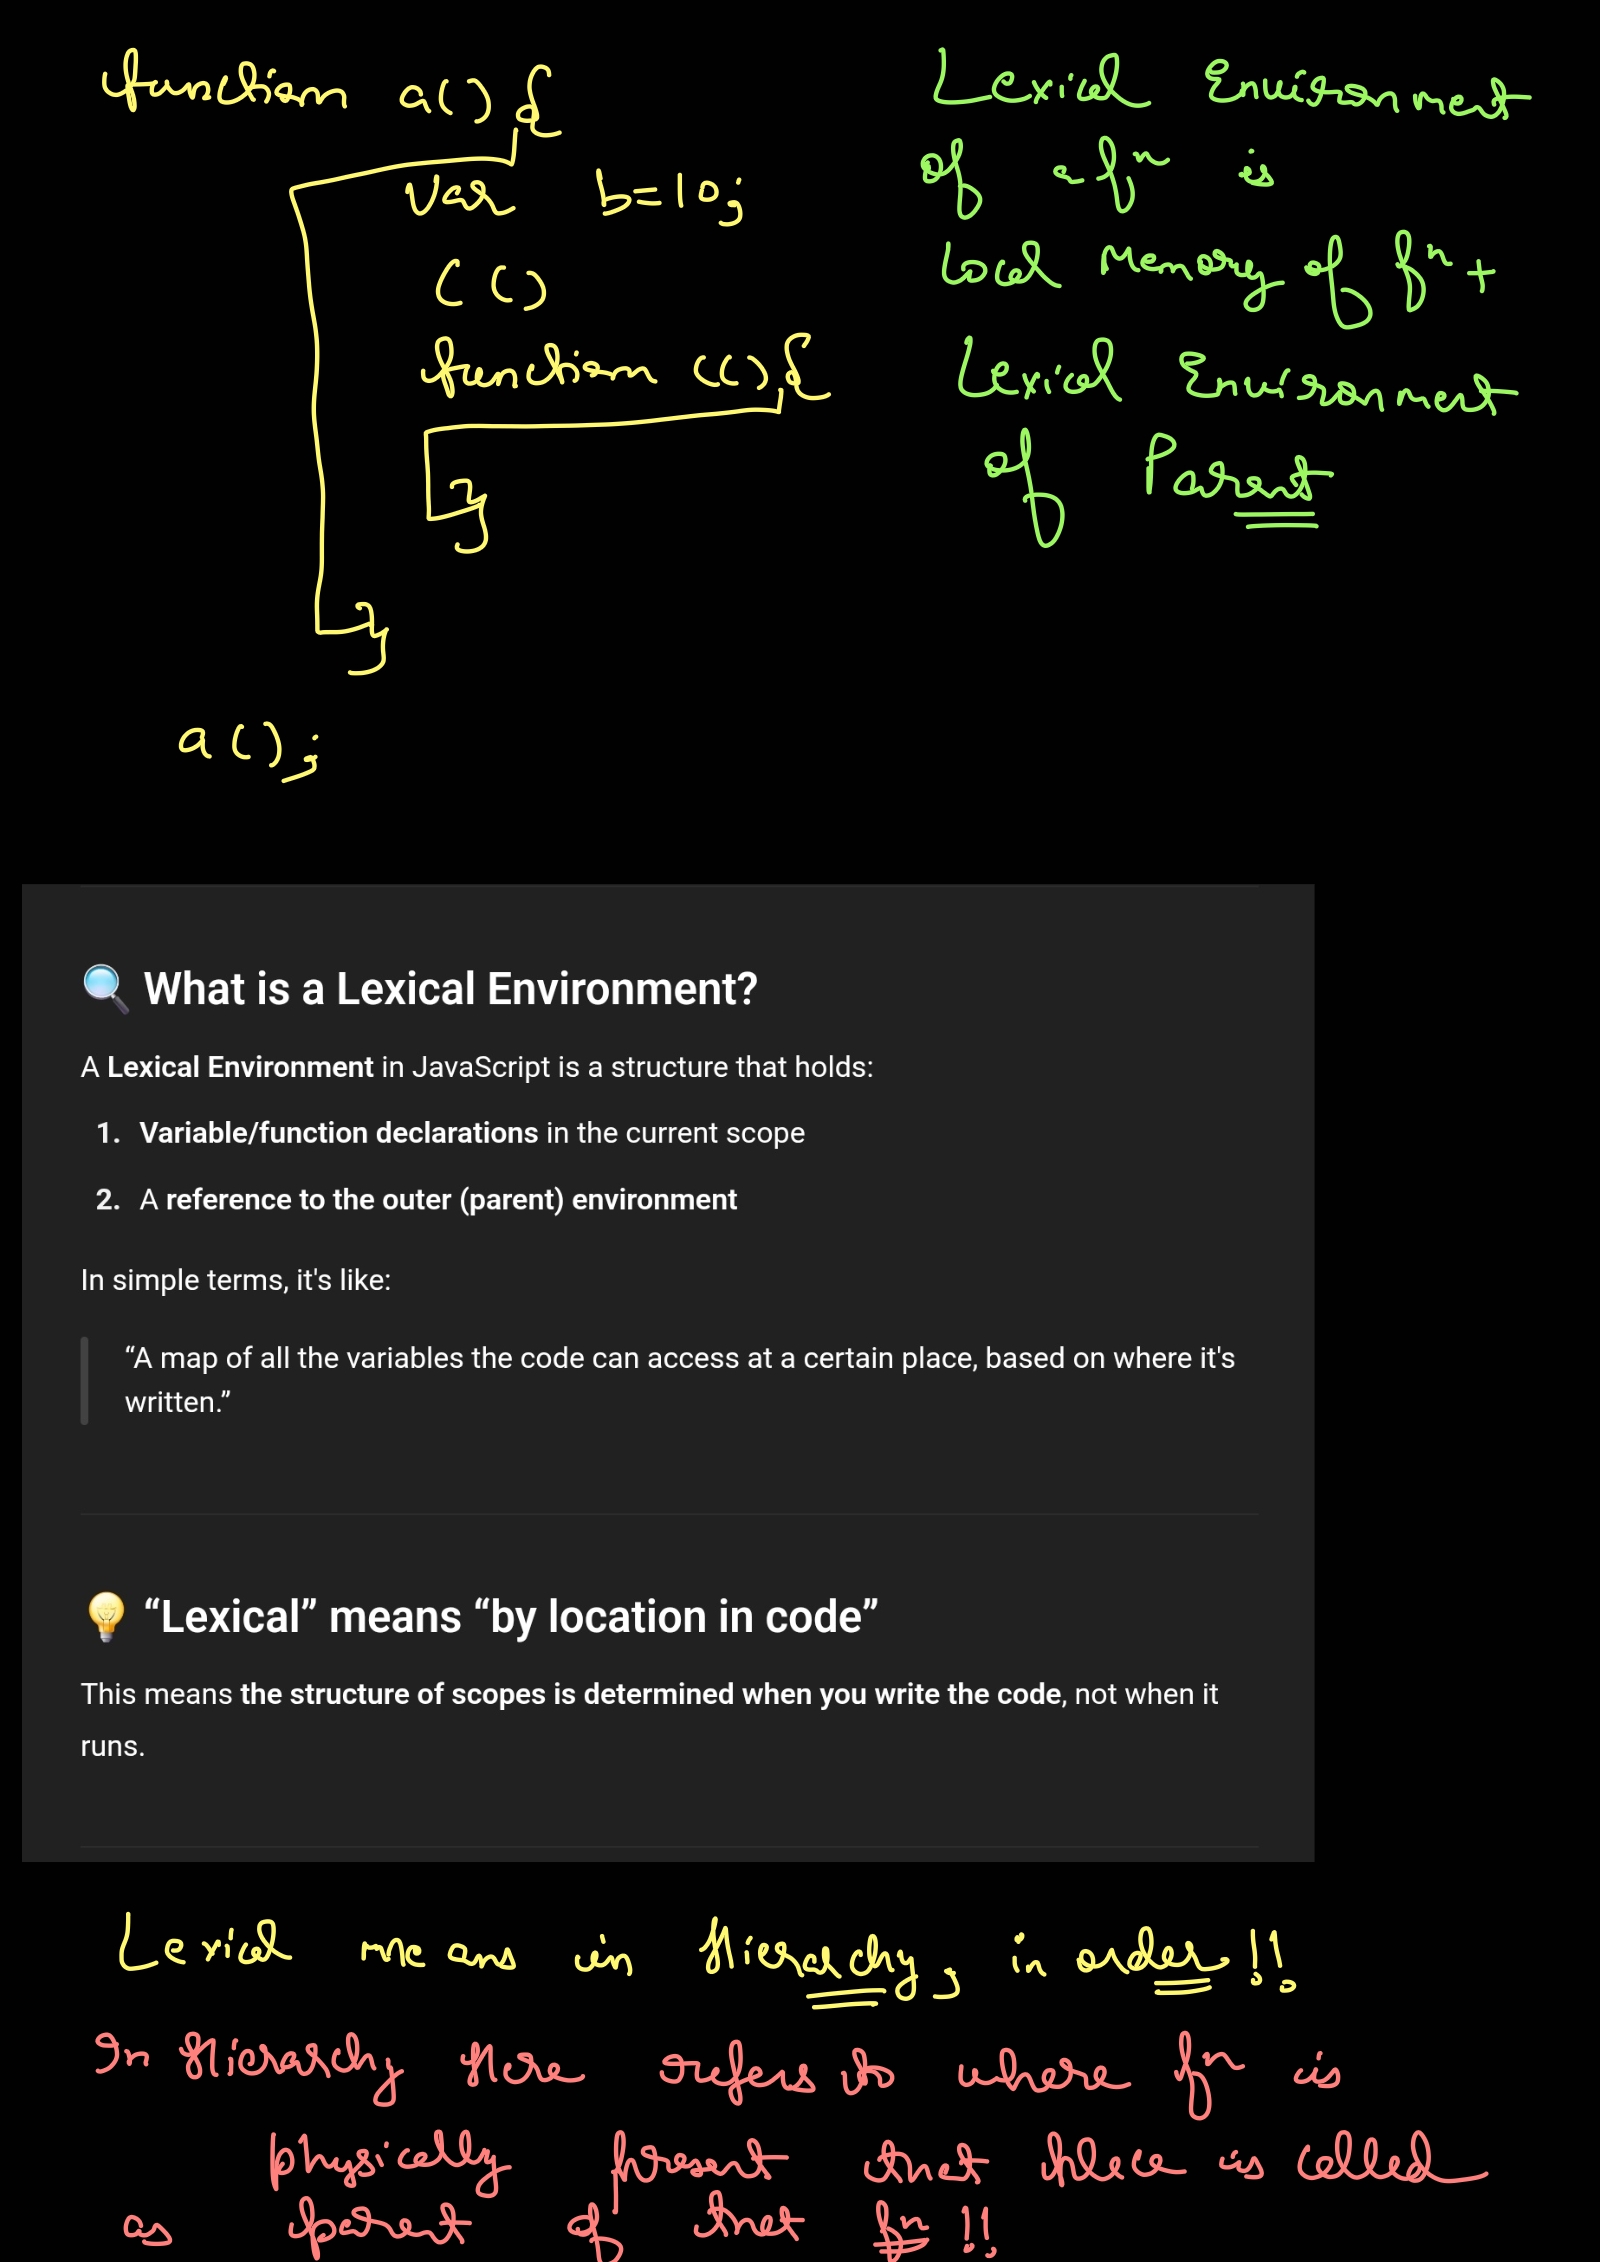 function a(){
var b=10;
c()
function c(){
}
}
a();
Lexical Environment
of a fn is
Local Memory of fn +
Lexical Environment
of Parent
🔍 What is a Lexical Environment?
A Lexical Environment in JavaScript is a structure that holds:
1. Variable/function declarations in the current scope
2. A reference to the outer (parent) environment
In simple terms, it's like:
“A map of all the variables the code can access at a certain place, based on where it's
written.”
💡 “Lexical” means “by location in code”
This means the structure of scopes is determined when you write the code, not when it
runs.
Lexical means in Hierarchy, in order!!
In Hierarchy Here refers to where fn is
physically present that place is called
as parent of that fn!!